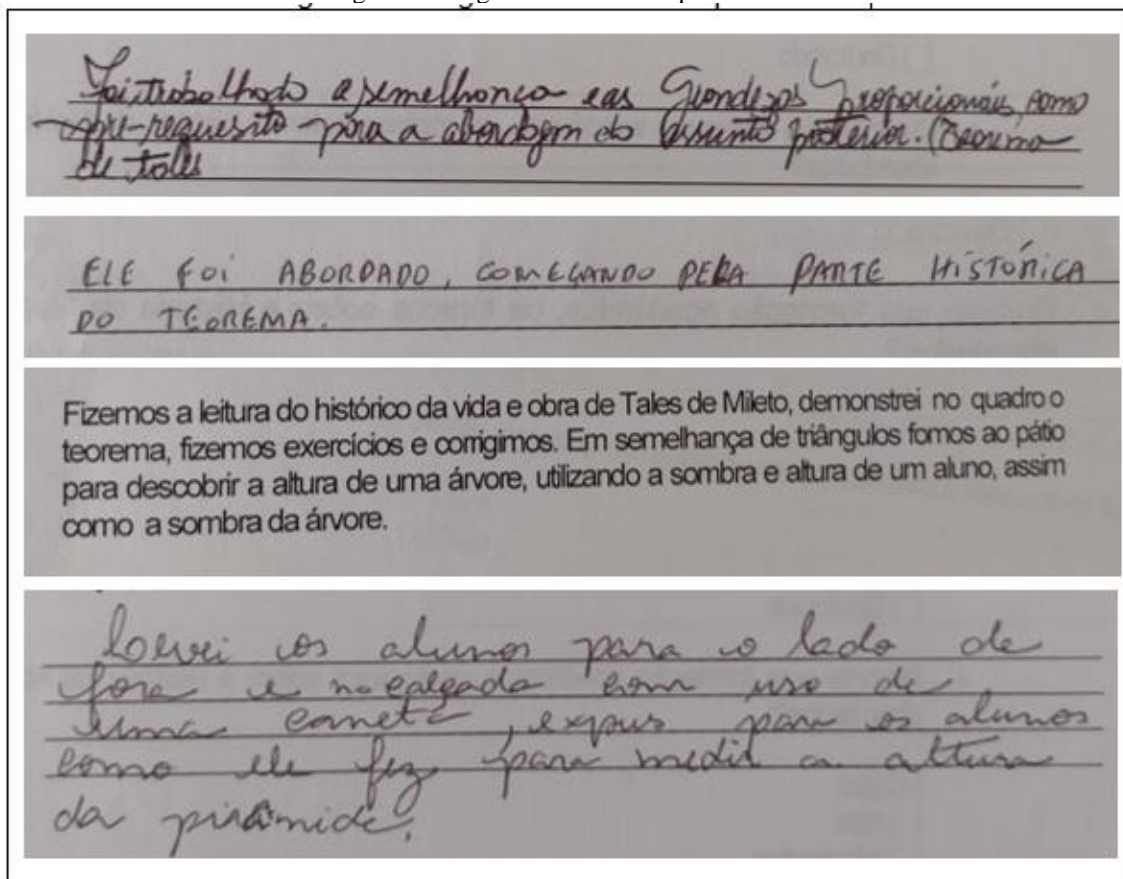 Foi trabalhado a semelhança e as Grandezas proporcionais, como
pré-requesito para a abordagem do assunto posterior. (Teorema
de tales
ELE FOI ABORDADO, COMEÇANDO PELA PARTE HISTÓRICA
DO TEOREMA.
Fizemos a leitura do histórico da vida e obra de Tales de Mileto, demonstrei no quadro o
teorema, fizemos exercícios e corrigimos. Em semelhança de triângulos fomos ao pátio
para descobrir a altura de uma árvore, utilizando a sombra e altura de um aluno, assim
como a sombra da árvore.
levei os alunos para o lado de
fora e na calçada com uso de
uma caneta, expus para os alunos
como ele fez para medir a altura
da pirâmide.